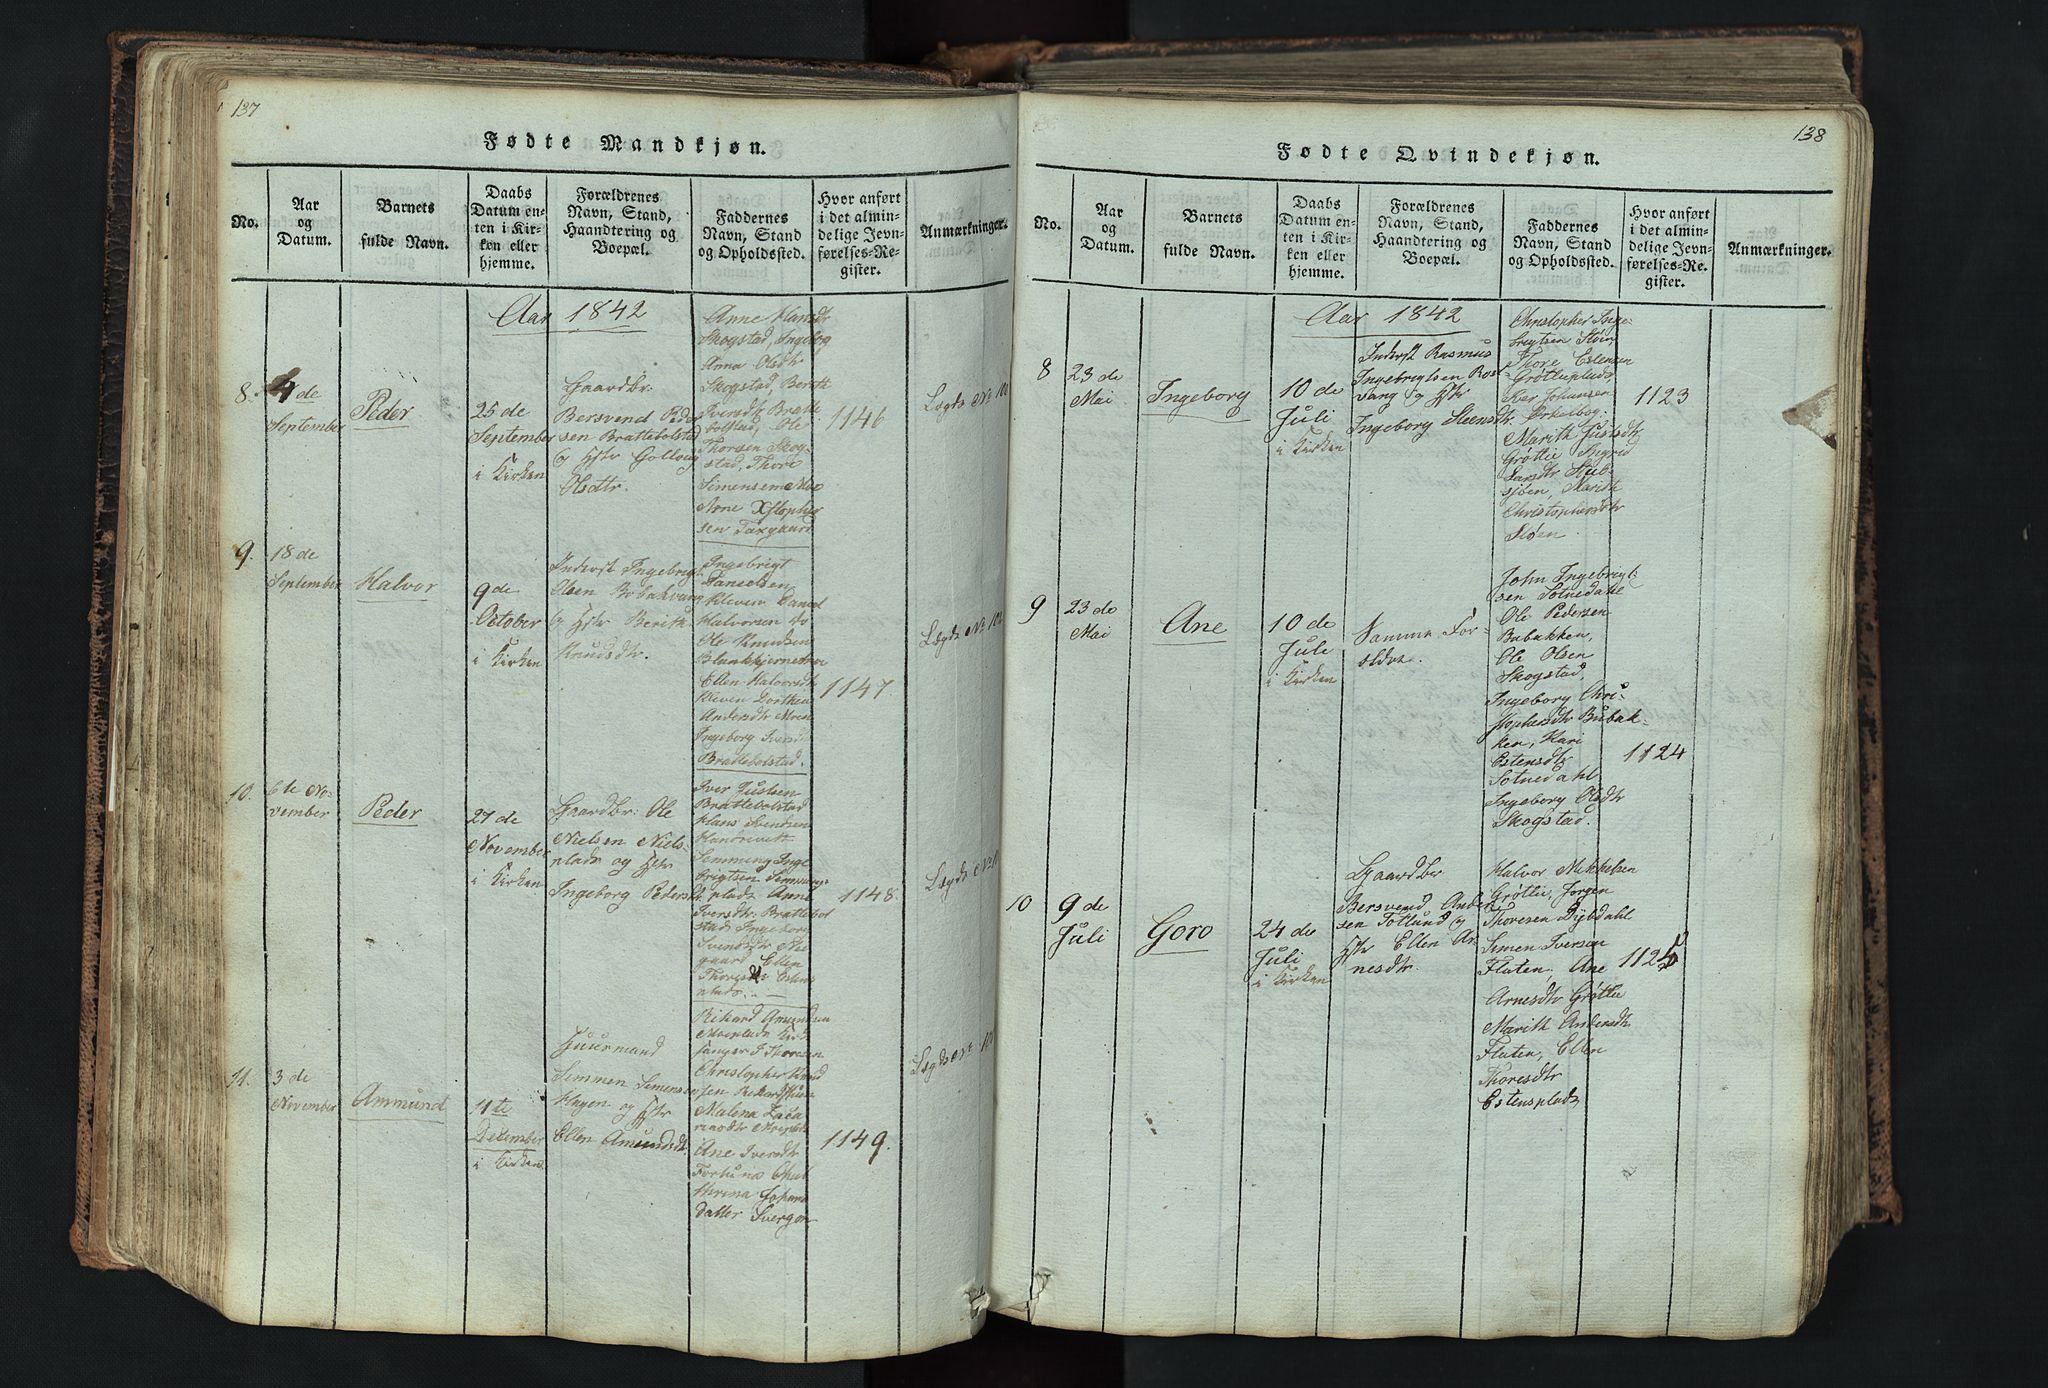 137
Fødte Mandkjøn.
No.
Aar
og
Datum.
Barnets
fulde Navn.
Daabs
Datum en-
ten i Kir-
ken eller
hjemme.
Forældrenes
Navn, Stand,
Haandtering og
Boepæl.
Faddernes
Navn, Stand
og Opholdssted.
Hvor anført
i det almin-
delige Jevn-
førelses-Re-
gister.
Anmærkninger.
Aar 1842
8.
4 de
September
Peder
25 de
September
i Kirken
Gaardbr.
Bersvend Peder
sen Brattebolstad
og Hstr Golloug
Olsdtr.
Anne Hansdtr
Skogstad, Ingebog
Anna Olsdtr
Skogstad, Berith
Iversdtr Bratte
bolstad, Ole
Thorsen Skog-
stad, Thore
Simensen Moe
Arne Xstopher
sen Taxgaard
1146
Lægds No 102
9.
18 de
September
Halvor
9 de
October
i Kirken
Inderst Ingebrigt
Olsen Bobakvang
og Hstr Berith
Knudsdtr.
Ingebrigt
Danselsen
Kleven Daniel
Halvorsen do
Ole Knudsen
Blankkjernmoe
Ellen Halvorsdtr
Kleven Dorthea
Andersdtr Moen
Ingeborg Svens
Brattebolstad.
1147
Lægds No 102
10.
6te No-
vember
Peder
27 de
November
i Kirken
Gaardbr: Ole
Nielsen Niels-
plads og Hstr
Ingeborg Pedersdt.
Iver Justsen
Brattebolstad
Hans Svendsen
Semming Inge
brigtsen
plads Anne
Iversdtr: Brattebol
stad Ingeborg
Svendsdtr Ne
gaard Ellen
Thoresdtr Estens
plads.
1148.
Lægds No
11.
3 de
November
Ammund
11te
December
i Kirken
Huusmand
Simmen Simensen
Hagen og Hstr
Ellen Amundsdt.
Rikard Amundsen
Moeplads Kirk
sanger J Thoresen
Christopher Knud
sen
Malena Zaca
riasdtr
Ane Iversdtr
Fortuna Cha
thrina Johans
datter
1149.
Lægds No 10
138
Fødte Qvindekjøn.
No.
Aar
og
Datum.
Barnets
fulde Navn.
Daabs
Datum en-
ten i Kir-
ken eller
hjemme.
Forældrenes
Navn, Stand,
Haandtering og
Boepæl.
Faddernes
Navn, Stand
og Opholdssted.
Hvor anført
i det almin-
delige Jevn-
førelses-Re-
gister.
Anmærkninger.
Aar 1842
8
23 de
Mai
Ingeborg
10 de
Juli
i Kirken
Inderst Rasmus
Ingebrigtsen Rost
vang og Hstr
Ingeborg Steensdtr.
Christopher Inge-
brigtsen Støen
Thore Estensen
Grøttuplads
Per Johansen
Orkelbog.
Marith Justsdtr
Grøttu Ingrid
Larsdtr Stub-
sjøen, Marith
Christophersdtr
Støen.
1123
9
23 de
Mai
Ane
10 de
Juli
i Kirken
Samme For-
eldre.
John Ingebrigt-
sen Sotnedahl
Ole Pedersen
Bubakken,
Ole Olsen
Skogstad,
Ingeborg Chri-
stophersdtr Bubak-
ken, Kari
Estensdtr
Sotnedahl
Ingeborg Olsdtr
Skogstad.
1124
10
9 de
Juli
Goro
24 de
Juli
i Kirken
Gaardbr
Bersvend Ander
sen Totlund og
Hstr Ellen Ar-
nesdtr.
Halvor Mikkelsen
Grøttu, Jørgen
Thoresen Dybdahl
Simen Iversen
Fluten. Ane
Arnesdtr Grøttu
Marith Andersdtr
Fluten, Ellen
Thoresdtr
Estensplads
1125